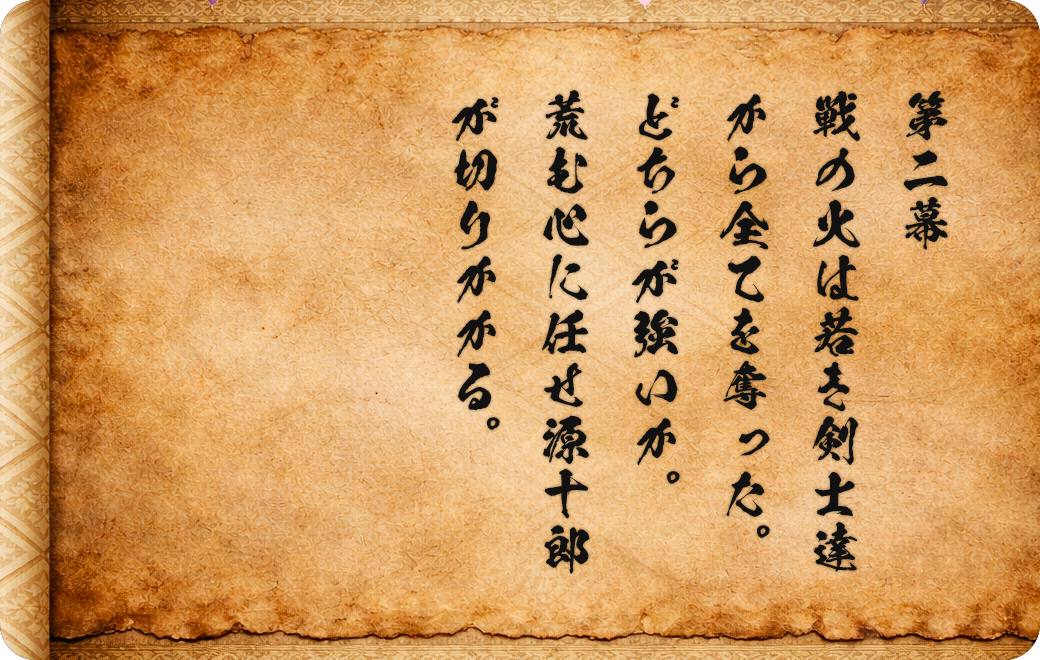 第二幕
戦の火は若き剣士達
から全てを奪った。
どちらが強いか。
荒む心に任せ源十郎
が切りかかる。